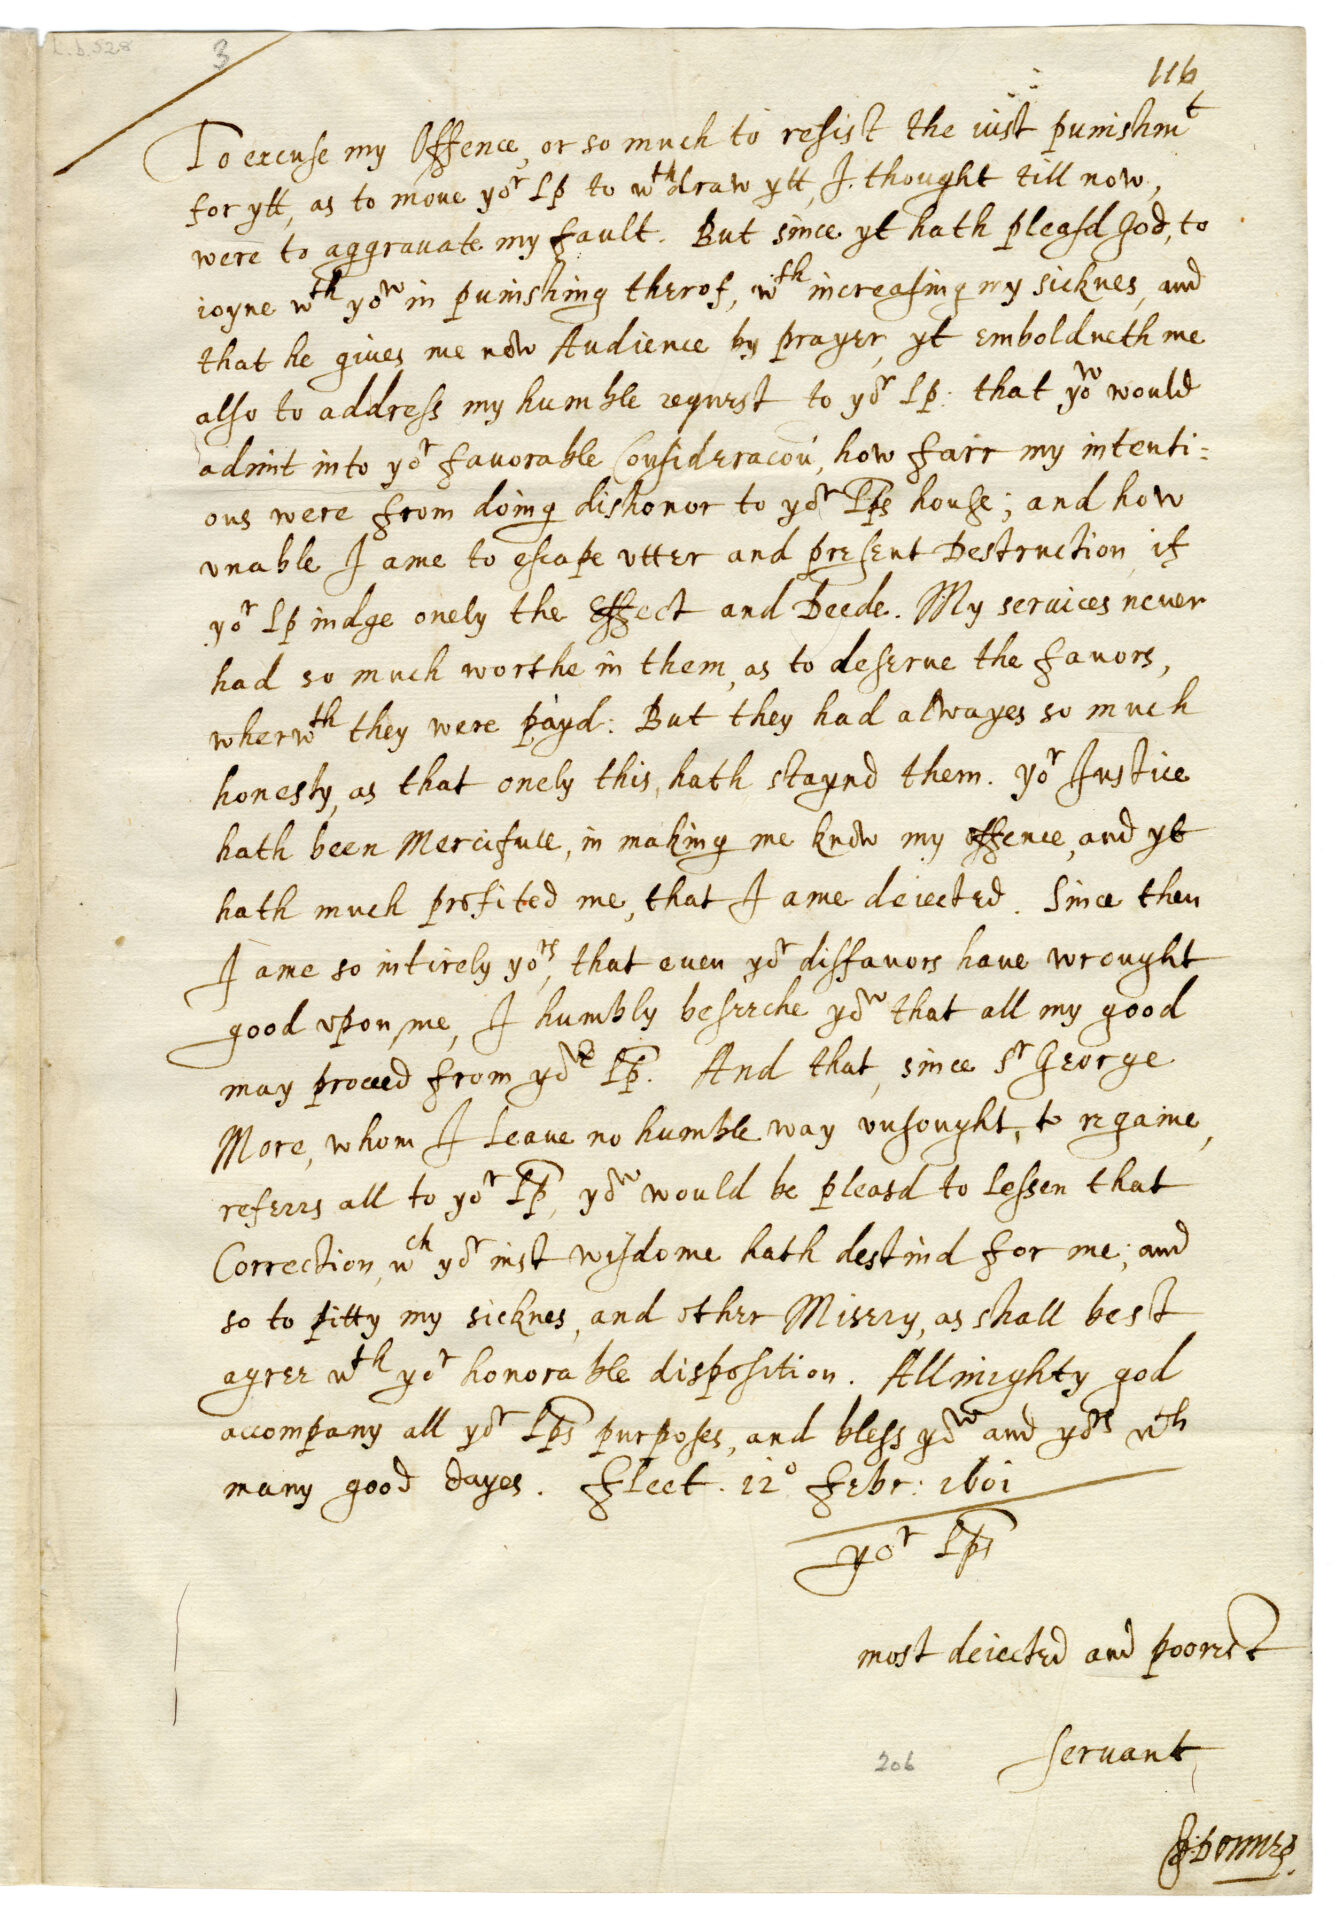 L.b.528
3
116
To excuse my Offence, or so much to resist the iust punishmt
for ytt, as to moue yor Lp to wthdraw ytt, I thought till now,
were to aggrauate my fault. But since yt hath pleasd God, to
ioyne wth yow in punishing therof, wth increasing my sicknes, and
that he gives me now Audience by prayer, yt emboldneth me
also to address my humble request to yor Lp: that yow would
admit into yor favorable Consideracon, how farr my intenti-
ons were from doing dishonor to yor Lps house; and how
vnable I ame to escape vtter and present Destruction, if
yor Lp iudge onely the Effect and Deede. My services never
had so much worthe in them, as to deserue the favors,
wherwth they were payd: But they had alwayes so much
honesty, as that onely this, hath staynd them. yor Iustice
hath been Mercifull, in making me know my offence, and yt
hath much profited me, that I ame deiected. Since then
I ame so intirely yors, that even yor disfavors have wrought
good vpon me, I humbly beseeche yow that all my good
may proceed from yor Lp. And that, since Sr George
More, whom I leave no humble way vnsought, to regaine,
referrs all to yor Lp, yow would be pleasd to lessen that
Correction, wch yor iust wisdome hath destind for me; and
so to pitty my sicknes, and other Misery, as shall best
agree wth yor honorable disposition. Allmighty god
accompany all yor Lps purposes, and bless yow and yors wth
many good dayes. Fleet. 12o Febr: 1601
yor Lps
most deiected and poorest
servant
206
J: Donne.